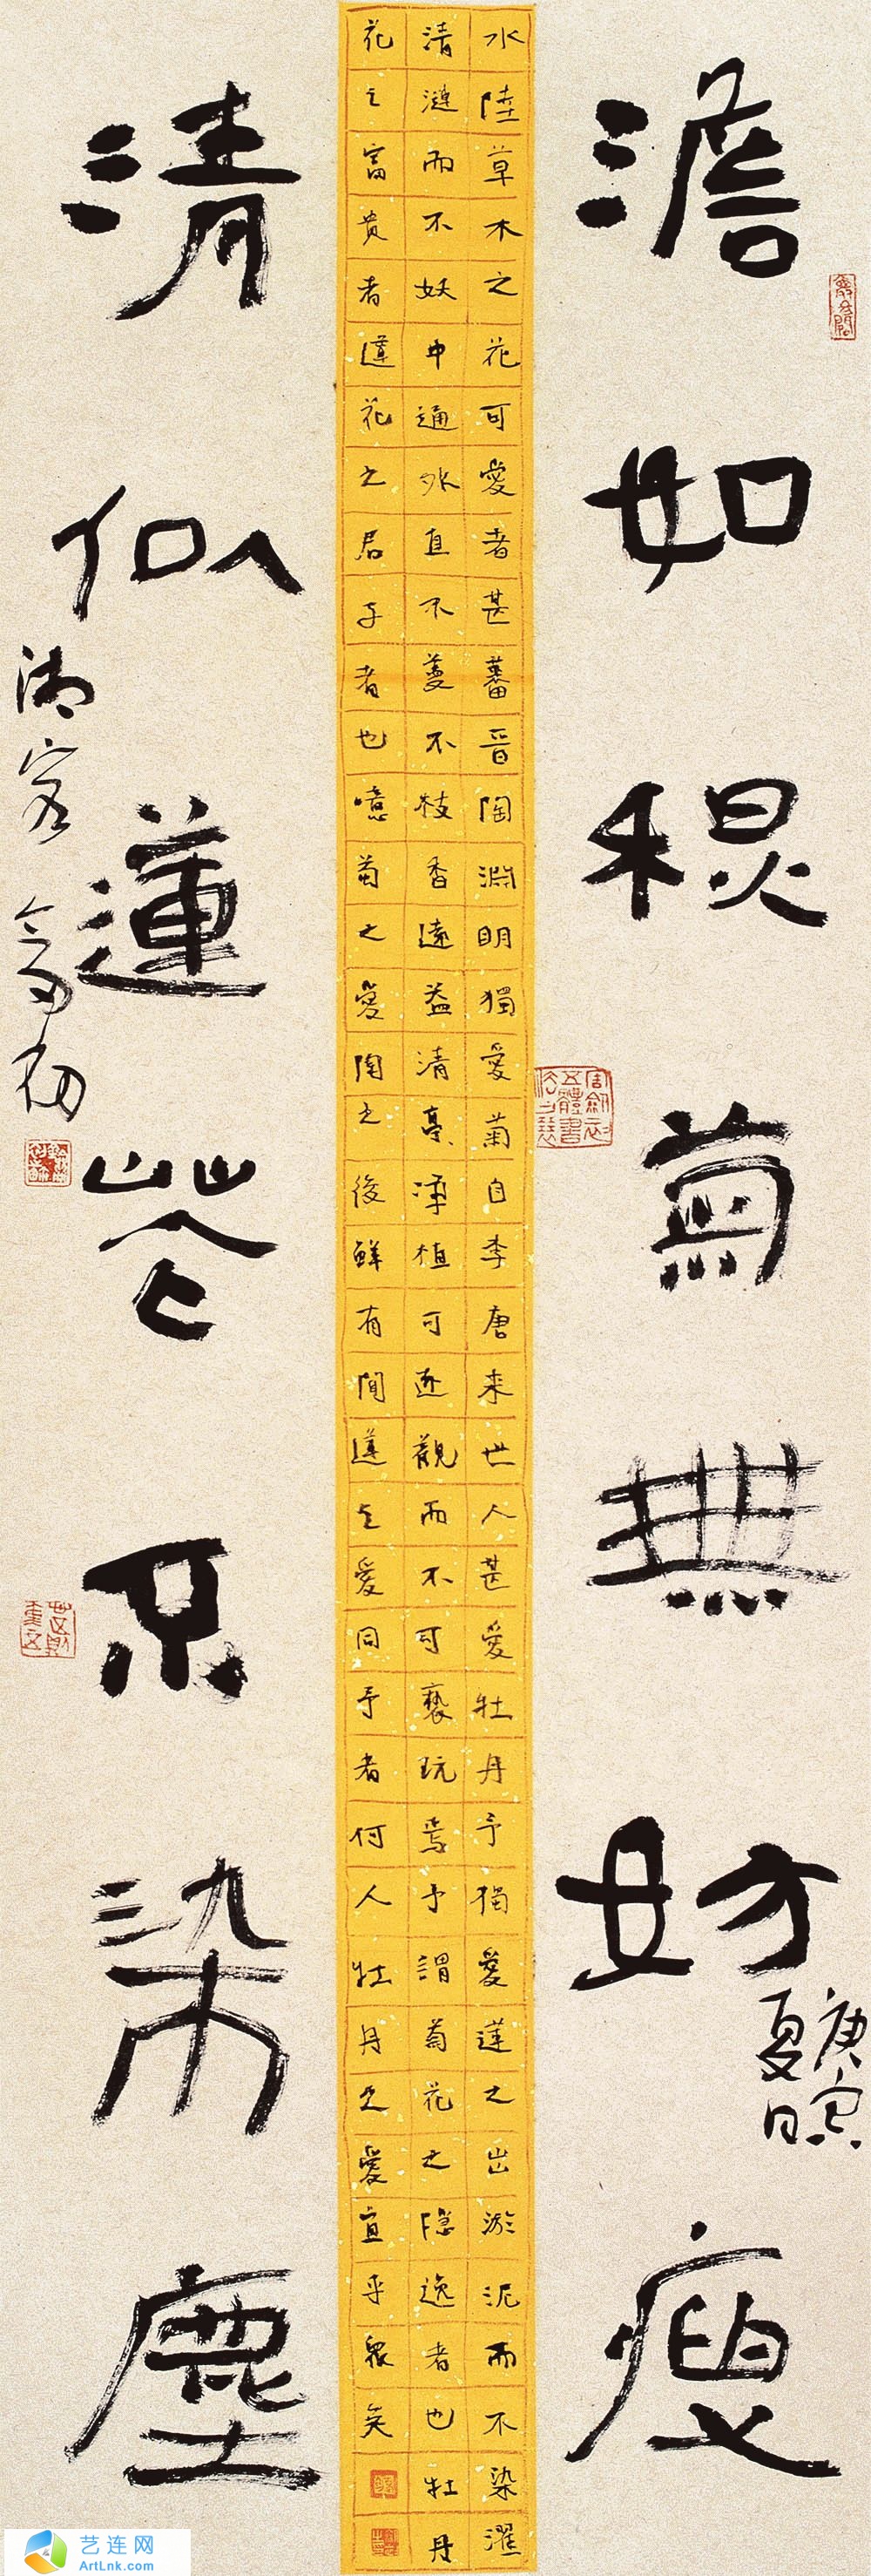 澹如穐菊無妨瘦
庚寅
夏日
水陸草木之花可愛者甚蕃晉陶淵明獨愛菊自李唐来世人甚愛牡丹予獨愛蓮之出淤泥而不染濯
清漣而不妖中通外直不蔓不枝香遠益清亭〻淨植可遠觀而不可褻玩焉予謂菊花之隱逸者也牡丹
花之富貴者蓮花之君子者也噫菊之愛陶之後鮮有聞蓮之愛同予者何人牡丹之愛宜乎眾矣
清似蓮花不染塵
艺连网
ArtLnk.com